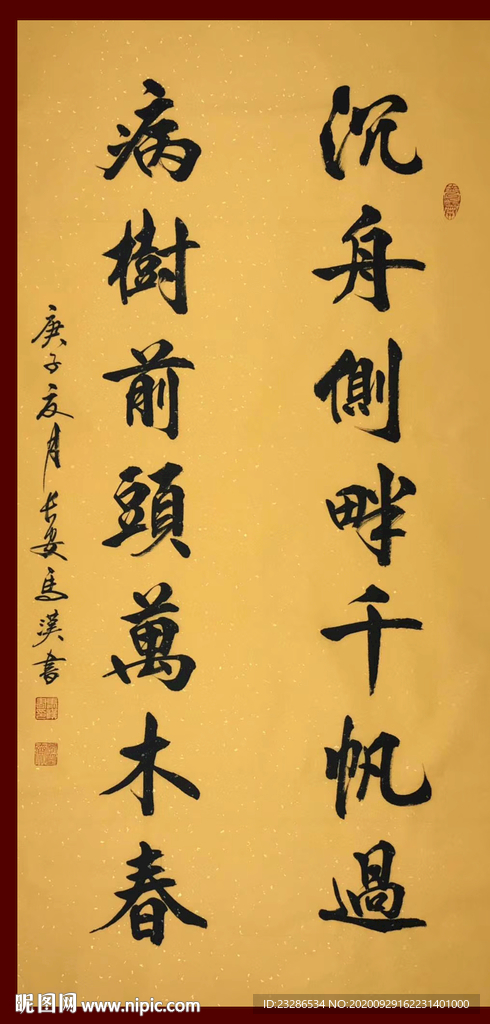 沉舟側畔千帆過
病樹前頭萬木春
庚子夏月長安馬漢書
昵图网 www.nipic.com
ID:23286534 NO:20200929162231401000